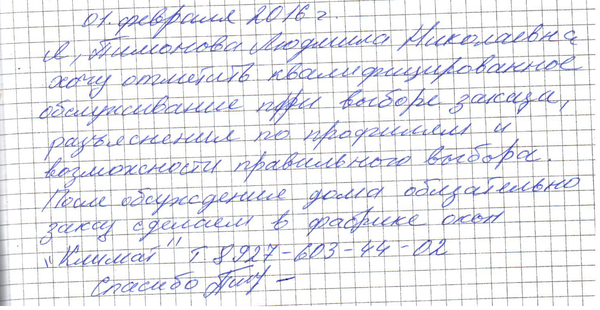 01. февраля 2016 г.
Я, Пимонова Людмила Николаевна
хочу отметить квалифицированное
обслуживание при выборе заказа,
разъяснения по профилям и
возможности правильного выбора.
После обсуждения дома обязательно
заказ сделаем в фабрике окон
„Климат" т 8927-603-44-02
Спасибо